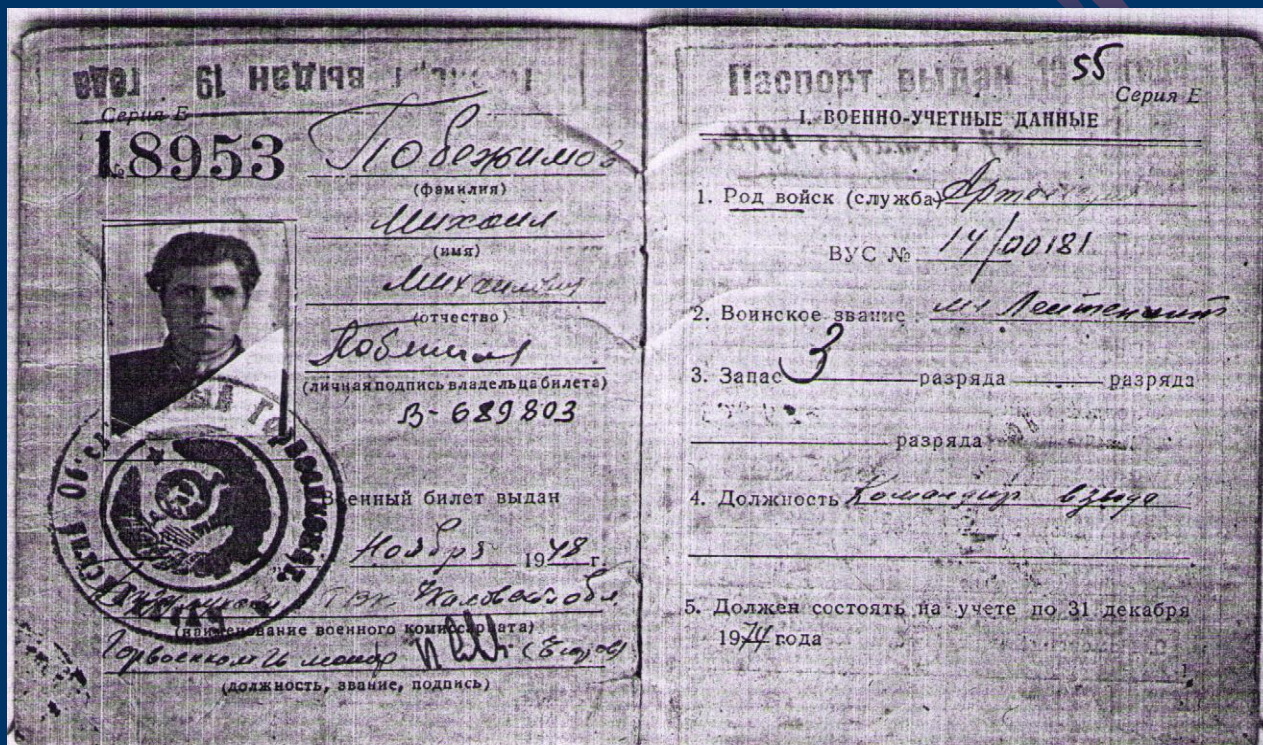 Паспорт выдан 19 года
Серия Е
18953
Побежимов
(фамилия)
Михаил
(имя)
Михайлович
(отчество)
(личная подпись владельца билета)
В-689803
Военный билет выдан
Ноября 1948 г.
ГВК обл.
(наименование военного комиссариата)
Горвоенком майор
(должность, звание, подпись)
Паспорт выдан 1955 года
Серия Е
I. ВОЕННО-УЧЕТНЫЕ ДАННЫЕ
1. Род войск (служба)
ВУС № 14/00181
2. Воинское звание мл Лейтенант
3. Запас 3 разряда разряда
разряда
4. Должность Командир взвода
5. Должен состоять на учете по 31 декабря
1974 года